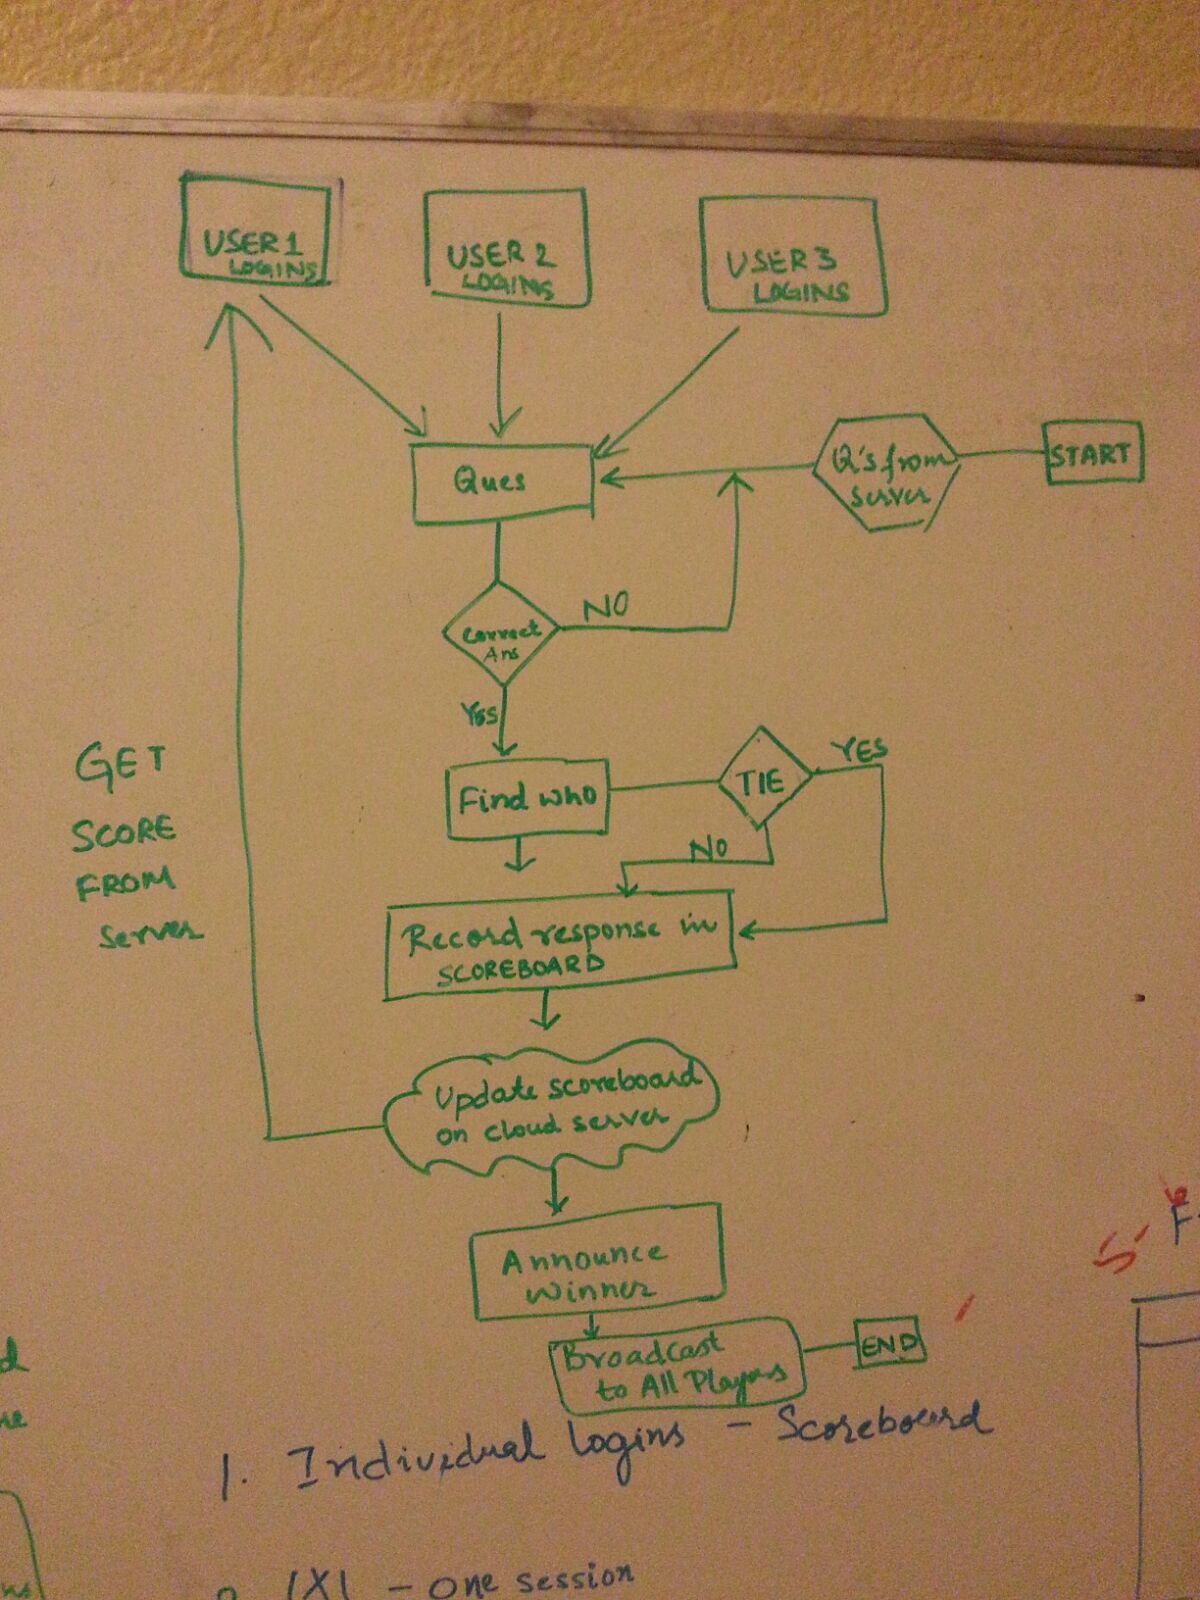 USER 1
LOGINS
USER 2
LOGINS
USER 3
LOGINS
Ques
Q's from
server
START
Correct
Ans
NO
YES
Find who
TIE
YES
NO
GET
SCORE
FROM
Server
Record response in
SCOREBOARD
Update scoreboard
on cloud server
Announce
Winner
Broadcast
to All Players
END
1. Individual logins - Scoreboard
1X1 - One session